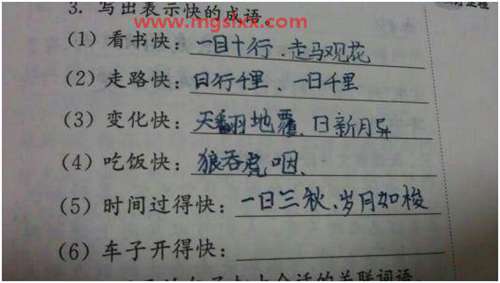 3. 写出表示快的成语。
www.mgshxx.com
(1) 看书快：一目十行、走马观花
(2) 走路快：日行千里、一日千里
(3) 变化快：天翻地覆、日新月异
(4) 吃饭快：狼吞虎咽.
(5) 时间过得快：一日三秋、岁月如梭
(6) 车子开得快：